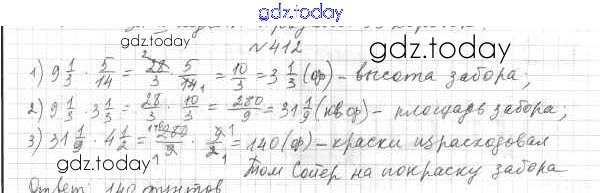 gdz.today
№412
gdz.today
gdz.today
1) 9 1/3 · 5/14 = 28/3 · 5/14 = 10/3 = 3 1/3 (ф) – высота забора;
2) 9 1/3 · 3 1/3 = 28/3 · 10/3 = 280/9 = 31 1/9 (кв ф) – площадь забора;
3) 31 1/9 · 4 1/2 = 280/9 · 9/2 = 140 (ф) – краски израсходовал
gdz.today
Том Сойер на покраску забора
Ответ: 140 фунтов